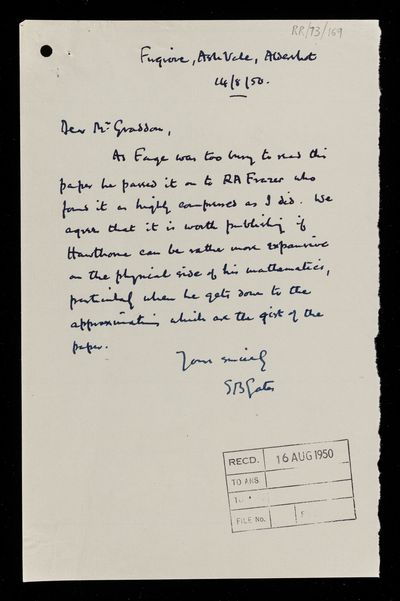 RR/73/169
Fugiore, Ash Vale, Aldershot
14/8/50.
Dear Mr Graddon,
As Fage was too busy to read this
paper he passed it on to RA Frazer who
found it as highly compressed as I did. We
agree that it is worth publishing if
Hawthorne can be rather more expansive
on the physical side of his mathematics,
particularly when he gets down to the
approximations which are the gist of the
paper.
Yours sincerely
S B Gates
RECD. 16 AUG 1950
TO ANS.
TO
FILE No.